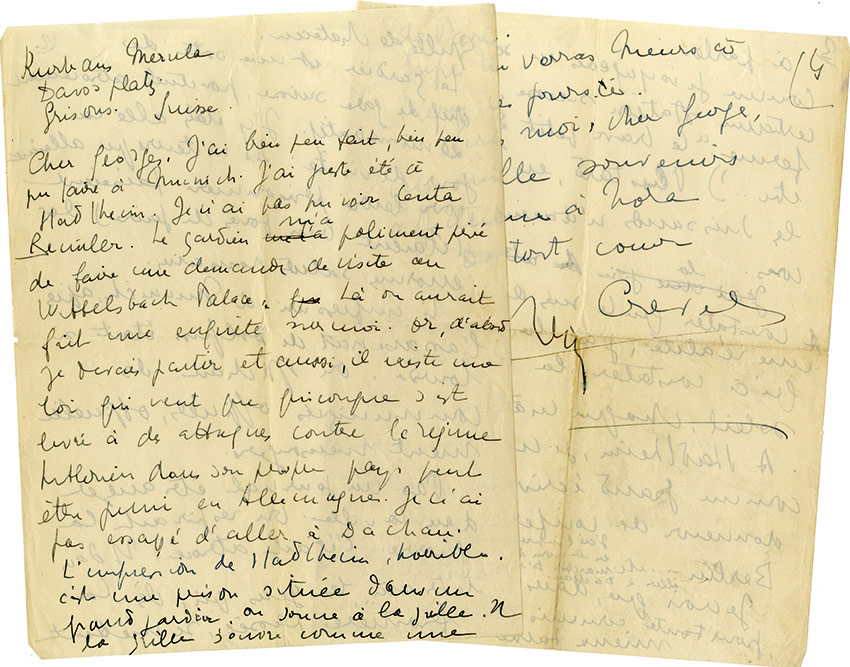 Kurhaus Merula
Davos platz.
Grisons. Suisse.
Cher Georges, J'ai bien peu fait, bien peu
pu faire à Munich. J'ai juste été à
Stadlheim. Je n'ai pas pu voir Centa
Le gardien m'a poliment prié
de faire une demande de visite au
Wittelsbach Palace. Là on aurait
fait une enquête sur moi. Or, d'abord
je devais partir et aussi, il existe une
loi qui veut que quiconque s'est
livré à des attaques contre le régime
hitlérien dans son propre pays peut
être puni en Allemagne. Je n'ai
pas essayé d'aller à Dachau.
L'impression de Stadlheim, horrible.
c'est une prison située dans un
grand jardin. on sonne à la grille. 
la grille s'ouvre comme une
4
verras mieux à
jours ci.
moi, cher George,
souvenirs
à Nora
tout coeur
Crevel